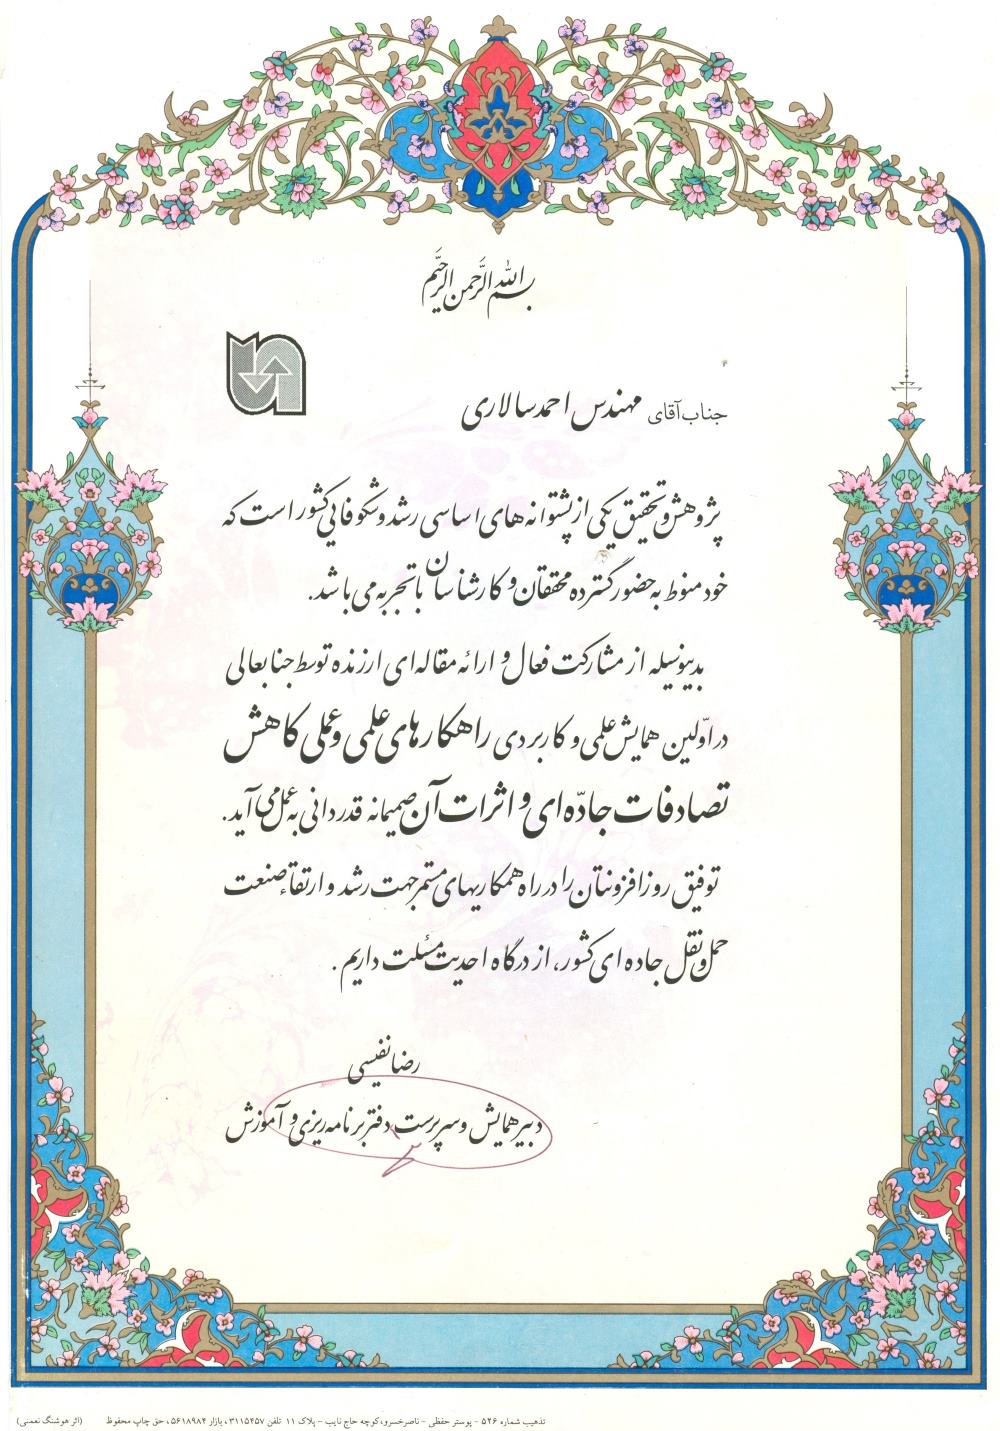 بسم الله الرحمن الرحیم
جناب آقای مهندس احمد سالاری
پژوهش و تحقیق یکی از پشتوانه های اساسی رشد و شکوفایی کشور است که
خود منوط به حضور گسترده محققان و کارشناسان با تجربه می باشد.
بدینوسیله از مشارکت فعال و ارائه مقاله ای ارزنده توسط جنابعالی
در اوّلین همایش علمی و کاربردی راهکارهای علمی و عملی کاهش
تصادفات جادّه ای و اثرات آن صمیمانه قدردانی به عمل می آید.
توفیق روزافزونتان را در راه همکاریهای مستمر جهت رشد و ارتقاء صنعت
حمل و نقل جاده ای کشور، از درگاه احدیت مسئلت داریم.
رضا نفیسی
دبیر همایش و سرپرست دفتر برنامه ریزی و آموزش
تذهیب شماره ۵۲۶ - پوستر حفظی - ناصرخسرو، کوچه حاج نایب - پلاک ۱۱ تلفن ۳۱۱۵۴۵۷، بازار ۵۶۱۸۹۸۴، حق چاپ محفوظ (اثر هوشنگ نعمتی)